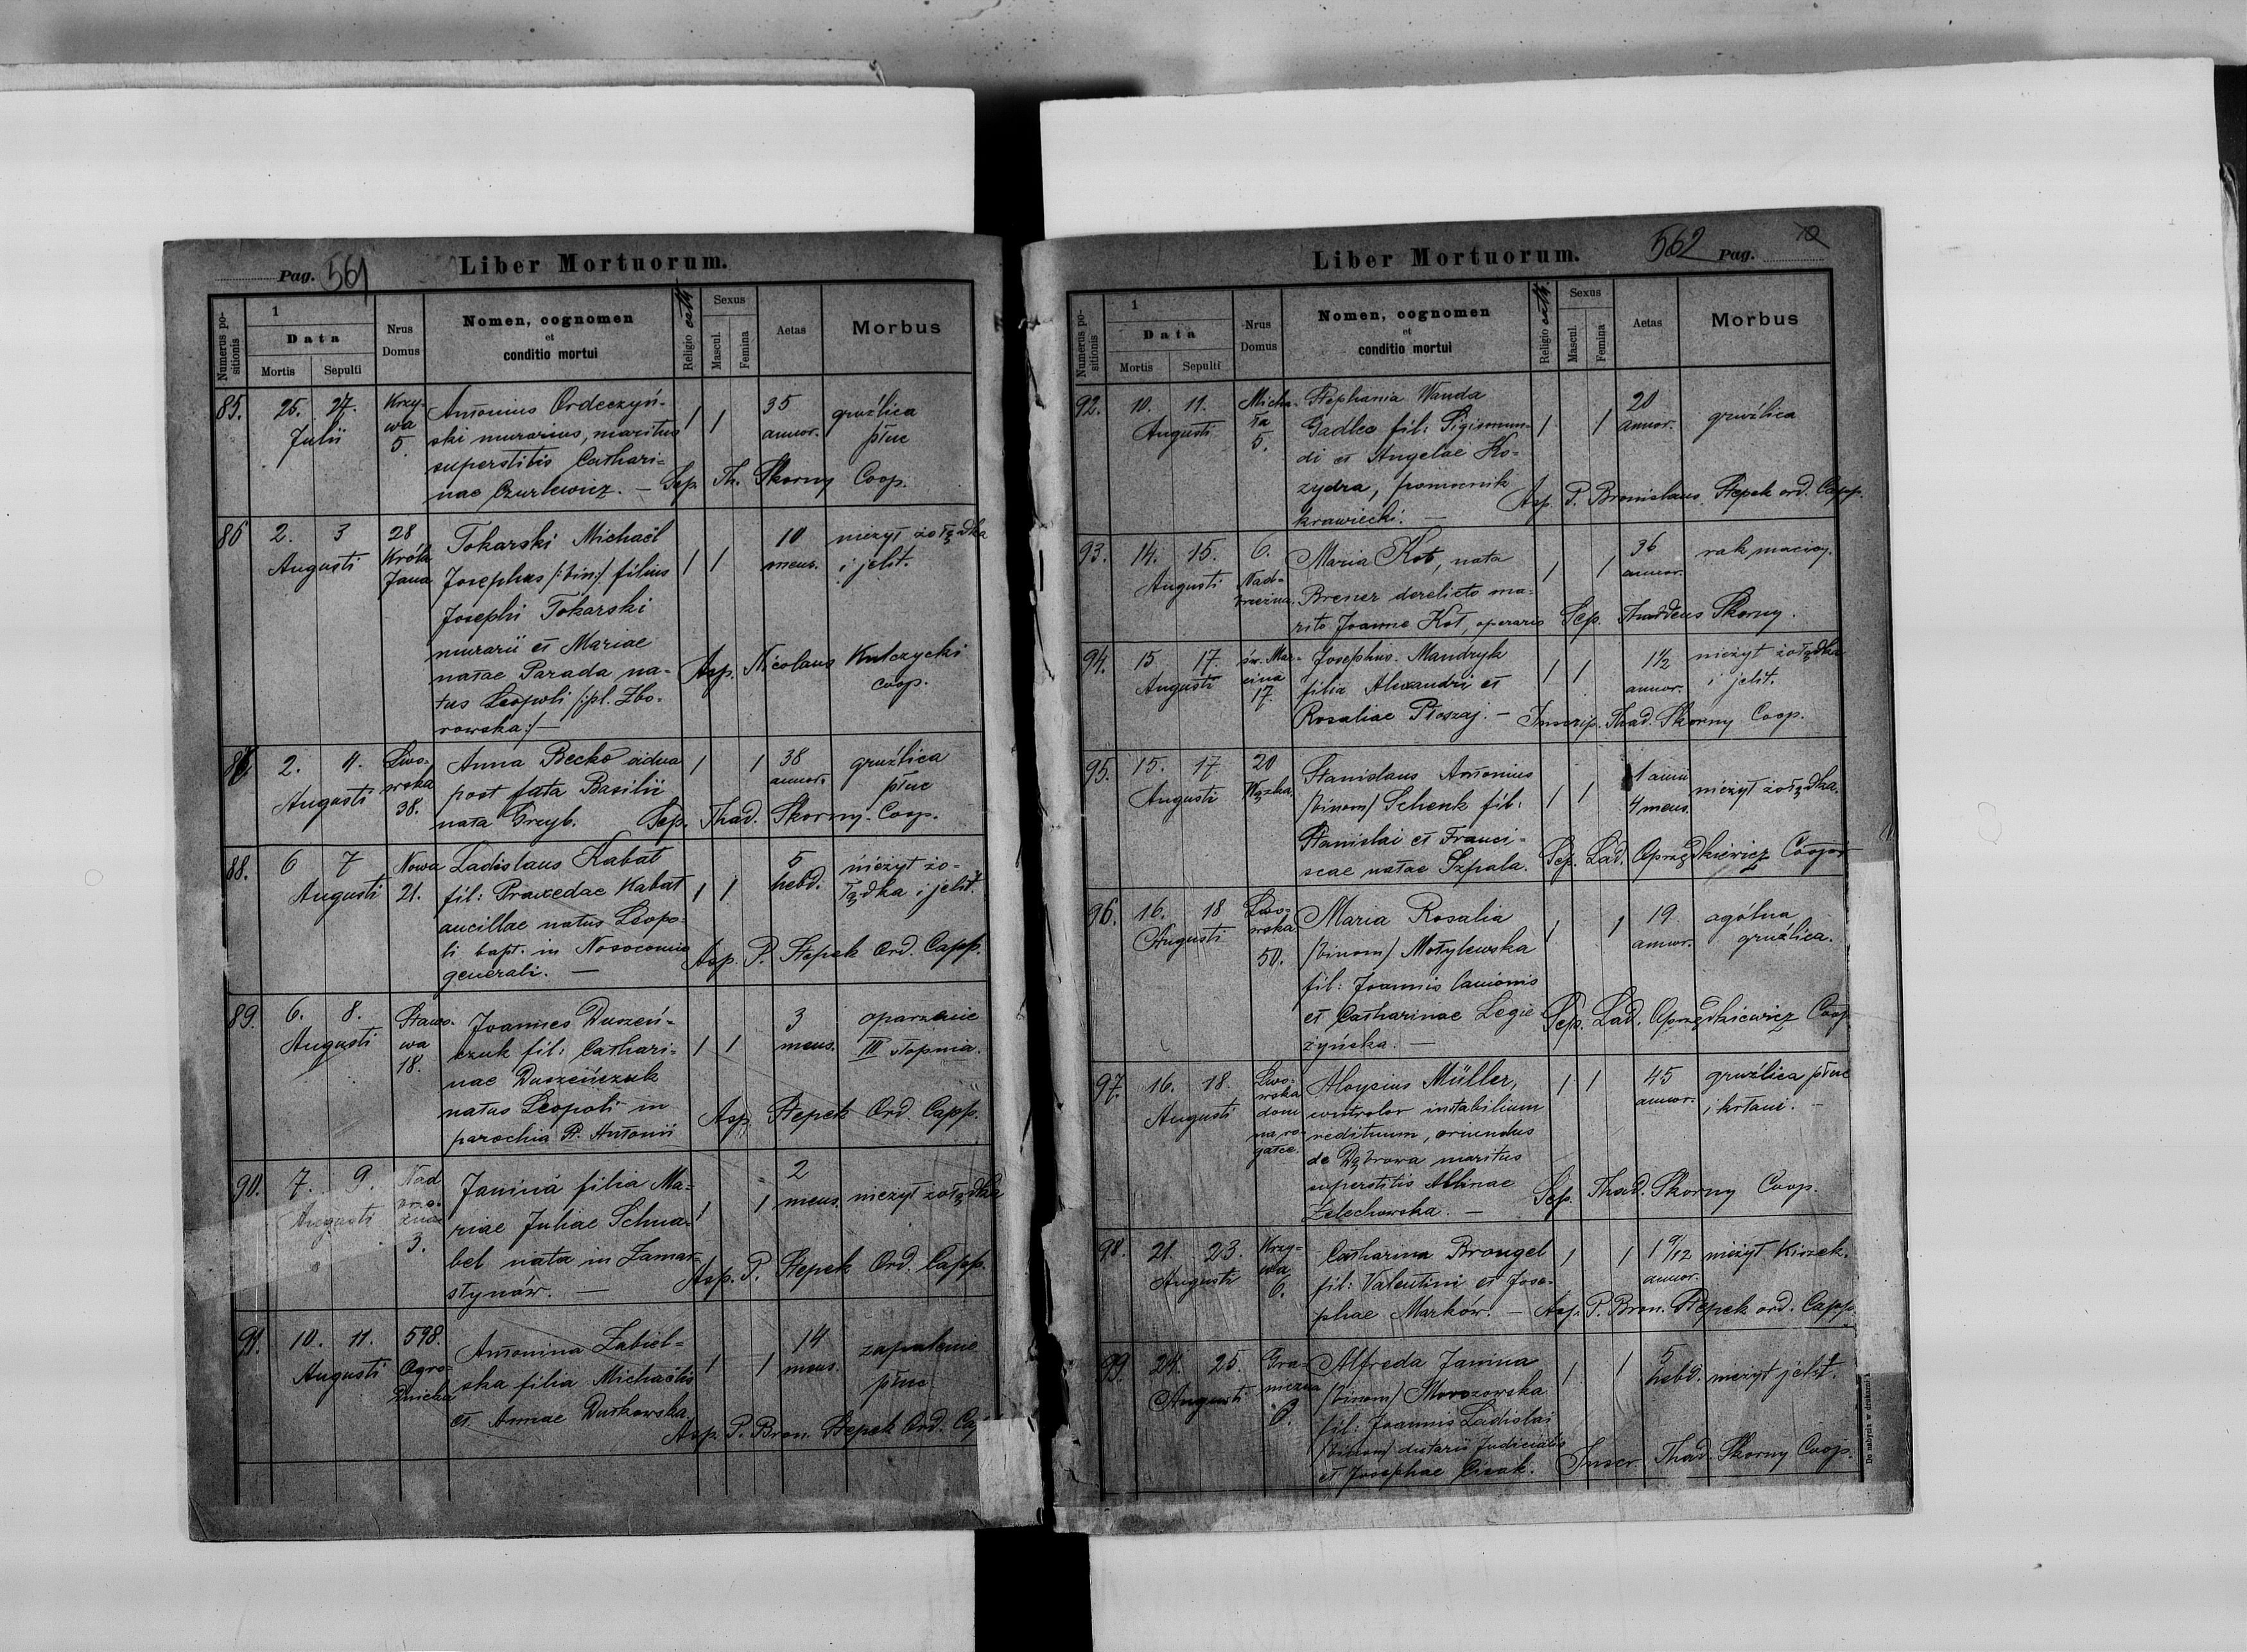 Pag. 561
Liber Mortuorum.
Numerus positionis
1
Data
Mortis Sepulti
Nrus Domus
Nomen, cognomen
et
conditio mortui
Religio cath.
Sexus
Mascul. Femina
Aetas
Morbus
85. 25. 27. Julii
Krzy-
wa
5
Antonius Ordeczyń-
ski murarius, maritus
superstitis Cathari-
nae Czurlewicz. —
1 1
35
annor.
gruźlica
płuc
Sep. Th. Skorny Coop.
86 2. 3 Augusti
28
Króla
Jana
Tokarski Michaël
Josephus /:bin:/ filius
Josephi Tokarski
murarii et Mariae
natae Parada na-
tus Leopoli /:pl. Zbo-
rowska:/ —
1 1
10
mens.
nieżyt żołądka
i jelit.
Asp. Nicolaus Kulczycki
coop.
87. 2. 4. Augusti
Lwo-
wska
38.
Anna Becko vidua
post fata Basilii
nata Grzyb.
1 1
38
annor.
gruźlica
płuc
Sep. Thad. Skorny. Coop.
88. 6 7 Augusti
Nowa
21.
Ladislaus Kabat
fil: Praxedae Kabat
ancillae natus Leopo-
li bapt. in Nosocomio
generali. —
1 1
5
hebd.
nieżyt żo-
łądka i jelit.
Asp. P. Stepek Ord. Capp.
89. 6. 8. Augusti
Stawo-
wa
18.
Joannes Duszeń-
czuk fil: Cathari-
nae Duszeńczuk
natus Leopoli in
parochia St. Antonii
1 1
3
mens.
oparzenie
III stopnia.
Asp. Stepek Ord. Capp.
90. 7. 9. Augusti
Nad
3.
Janina filia Ma-
riae Juliae Schna-
bel nata in Zamar-
stynów. —
1 1
2
mens.
nieżyt żołądka
Asp. P. Stepek Ord. Capp.
91. 10. 11. Augusti
598.
Ogro-
dnicka
Antonina Zabiel-
ska filia Michaëlis
et Annae Dutkowska
1 1
14
mens.
zapalenie
płuc
Asp. P. Bron. Stepek Ord.
Liber Mortuorum.
562 Pag.
Numerus positionis
1
Data
Mortis Sepulti
Nrus Domus
Nomen, cognomen
et
conditio mortui
Religio cath.
Sexus
Mascul. Femina
Aetas
Morbus
92. 10. 11. Augusti
Micha-
ła
5.
Stephania Wanda
Gadlec fil: Sigismun-
di et Angelae Ko-
zydra, pomocnik
krawiecki. —
1 1
20
annor.
gruźlica
Asp. P. Bronislaus Stepek ord. Capp.
93. 14. 15. Augusti
6.
Nad-
brzeżna.
Maria Kot, nata
Brener derelicto ma-
rito Joanne Kot, operario
1 1
36
annor.
rak macicy.
Sep. Thaddeus Skorny.
94. 15 17. Augusti
św. Mar-
cina
17.
Josephus Mandryk
filia Alexandri et
Rosaliae Płoszaj. —
1 1
1½
annor.
nieżyt żołądka
i jelit.
Inscrip. Thad. Skorny Coop.
95. 15. 17. Augusti
20
Wązka.
Stanislaus Antonius
/binom/ Schenk fil:
Stanislai et Franci-
scae natae Szpala.
1 1
1 anni
4 mens.
nieżyt żołądka.
Sep. Lad. Oprządkiewicz Cooper
96. 16. 18 Augusti
Lwo-
wska
50.
Maria Rosalia
/binom/ Motylewska
fil: Joannis
et Catharinae Legie
żyńska. —
1 1
19
annor.
ogólna
gruźlica.
Sep. Lad. Oprządkiewicz Coop
97. 16. 18. Augusti
Lwo-
wska
dom
na ro-
gatce.
Aloysius Müller,
controlor instabilium
redituum, oriundus
de Dąbrowa maritus
superstitis Albinae
Zelechowska. —
1 1
45
annor.
gruźlica płuc
i krtani. —
Sep. Thad. Skorny Coop.
98. 21. 23. Augusti
Krzy-
wa
6.
Catharina Brongel
fil: Valentini et Jose-
phae Marków. —
1 1
1 9/12
annor.
nieżyt Kiszek.
Asp. P. Bron. Stepek ord. Capp.
99. 24. 25. Augusti
Gra-
niczna
6.
Alfreda Janina
/binom/ Morozowska
fil: Joannis Ladislai
/binom/ dietarii Judicialis
et Josephae Cicak.
1 1
5
hebd.
nieżyt jelit.
Inscr. Thad. Skorny Coop.